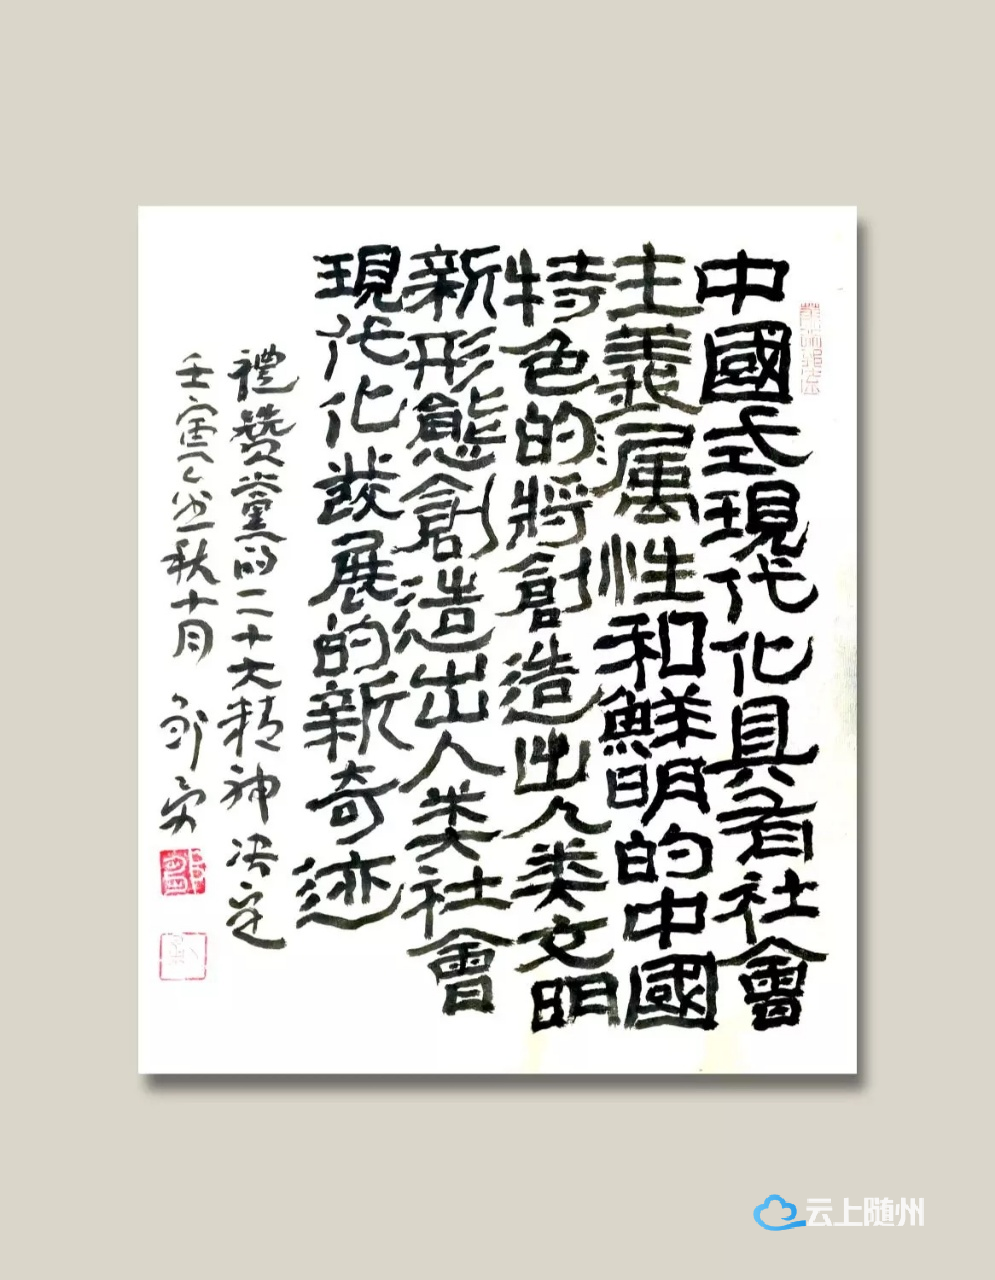 中國式現代化具有社會
主義属性和鮮明的中國
特色的將創造出人类文明
新形態創造出人类社會
現代化發展的新奇迹
禮贊黨的二十大精神决定
壬寅之金秋十月
云上随州